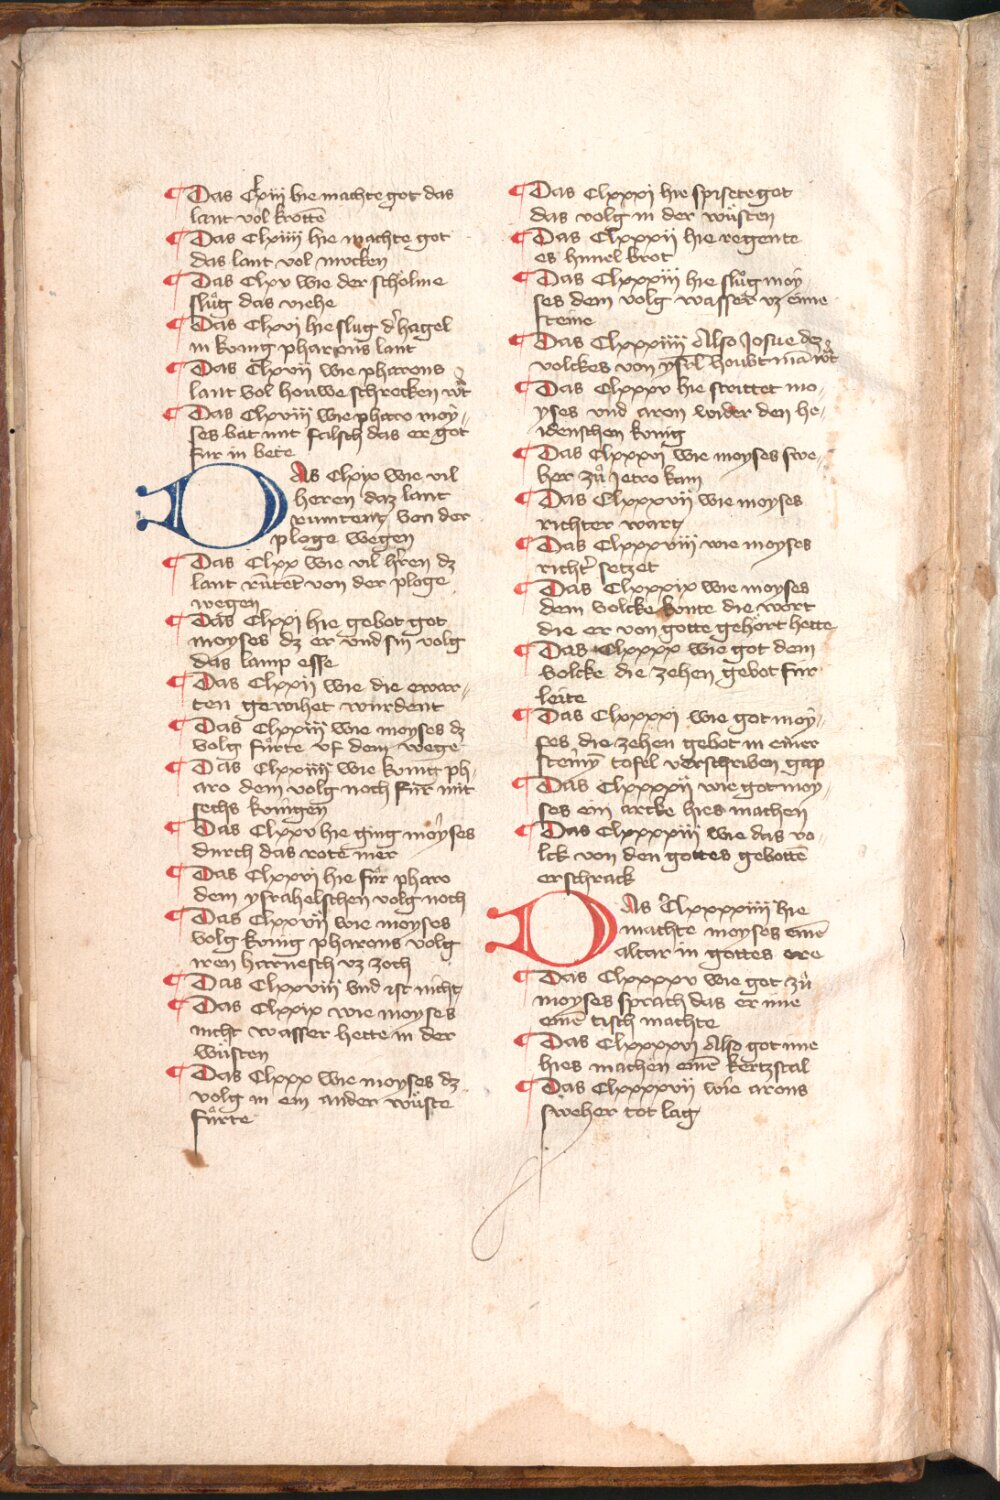 ¶ Das Clxiii hie machte got das
lant vol krottē
¶ Das Clxiiii hie machte got
das lant vol mucken
¶ Das Clxv wie der schölme
slůg das viehe
¶ Das Clxvi hie slug d᾽ hagel
in konig pharons lant
¶ Das Clxvii wie pharons
lant vol houwe schrecken wt᾽
¶ Das Clxviii wie pharo moÿ-
ses bat mit falsch das er got
fur in bete
DAs Clxix wie vil
heren daz lant
rumtent von der
ploge wegen
¶ Das Clxx wie vil h᾽ren dz
lant růtēt von der ploge
wegen
¶ Das Clxxi hie gebot got
moyses dz er vnd sin volg
das lamp esse
¶ Das Clxxii wie die ewar-
ten gewihet wurdent
¶ Das Clxxiii wie moyses dz
volg fůrte vf dem wege
¶ Das Clxxiiii wie konig ph-
aro dem volg noch fůr mit
sechs konigen
¶ Das Clxxv hie ging moyses
durch das rote mer
¶ Das Clxxvi hie fůr pharo
dem ysrahelschen volg noch
¶ Das Clxxvii wie moyses
volg konig pharons volg
iren harnesch vz zoch
¶ Das Clxxviii vnd ist nicht
¶ Das Clxxix wie moyses
nicht wasser hette in der
wůsten
¶ Das Clxxx wie moyses dz
volg in ein ander wůste
fůrte
¶ Das Clxxxi hie spisete got
das volg in der wůsten
¶ Das Clxxxii hie regente
es himel brot
¶ Das Clxxxiii hie slůg moÿ-
ses dem volg wasser vz eime
steine
¶ Das Clxxxiiii Also Josue dez
volckes von ysrl houbt mā wt᾽
¶ Das Clxxxv hie strittet mo-
yses vnd aron wider den he-
idenschen konig
¶ Das Clxxxvi wie moyses swe-
her zů Jetro kam
¶ Das Clxxxvii wie moyses
richter wart
¶ Das Clxxxviii wie moyses
richt᾽ setzet
¶ Das Clxxxix wie moyses
dem volcke konte die wort
die er von gotte gehört hette
¶ Das Clxxxx wie got dem
volcke die zehen gebot für
leite
¶ Das Clxxxxi wie got moÿ-
ses die zehen gebot in einer
steinÿ tofel verschriben gap
¶ Das Clxxxxii wie got moy-
ses ein arcke hies machen
¶ Das Clxxxxiii wie das vo-
lck von den gottes gebottē
erschrack
DAs Clxxxxiiii hie
machte moyses einē
altar in gottes ere
¶ Das Clxxxxv wie got zů
moyses sprach das er ime
einē tisch machte
¶ Das Clxxxxvi Also got ime
hies machen einē kertzstal
¶ Das Clxxxxvii wie arons
sweher tot lag